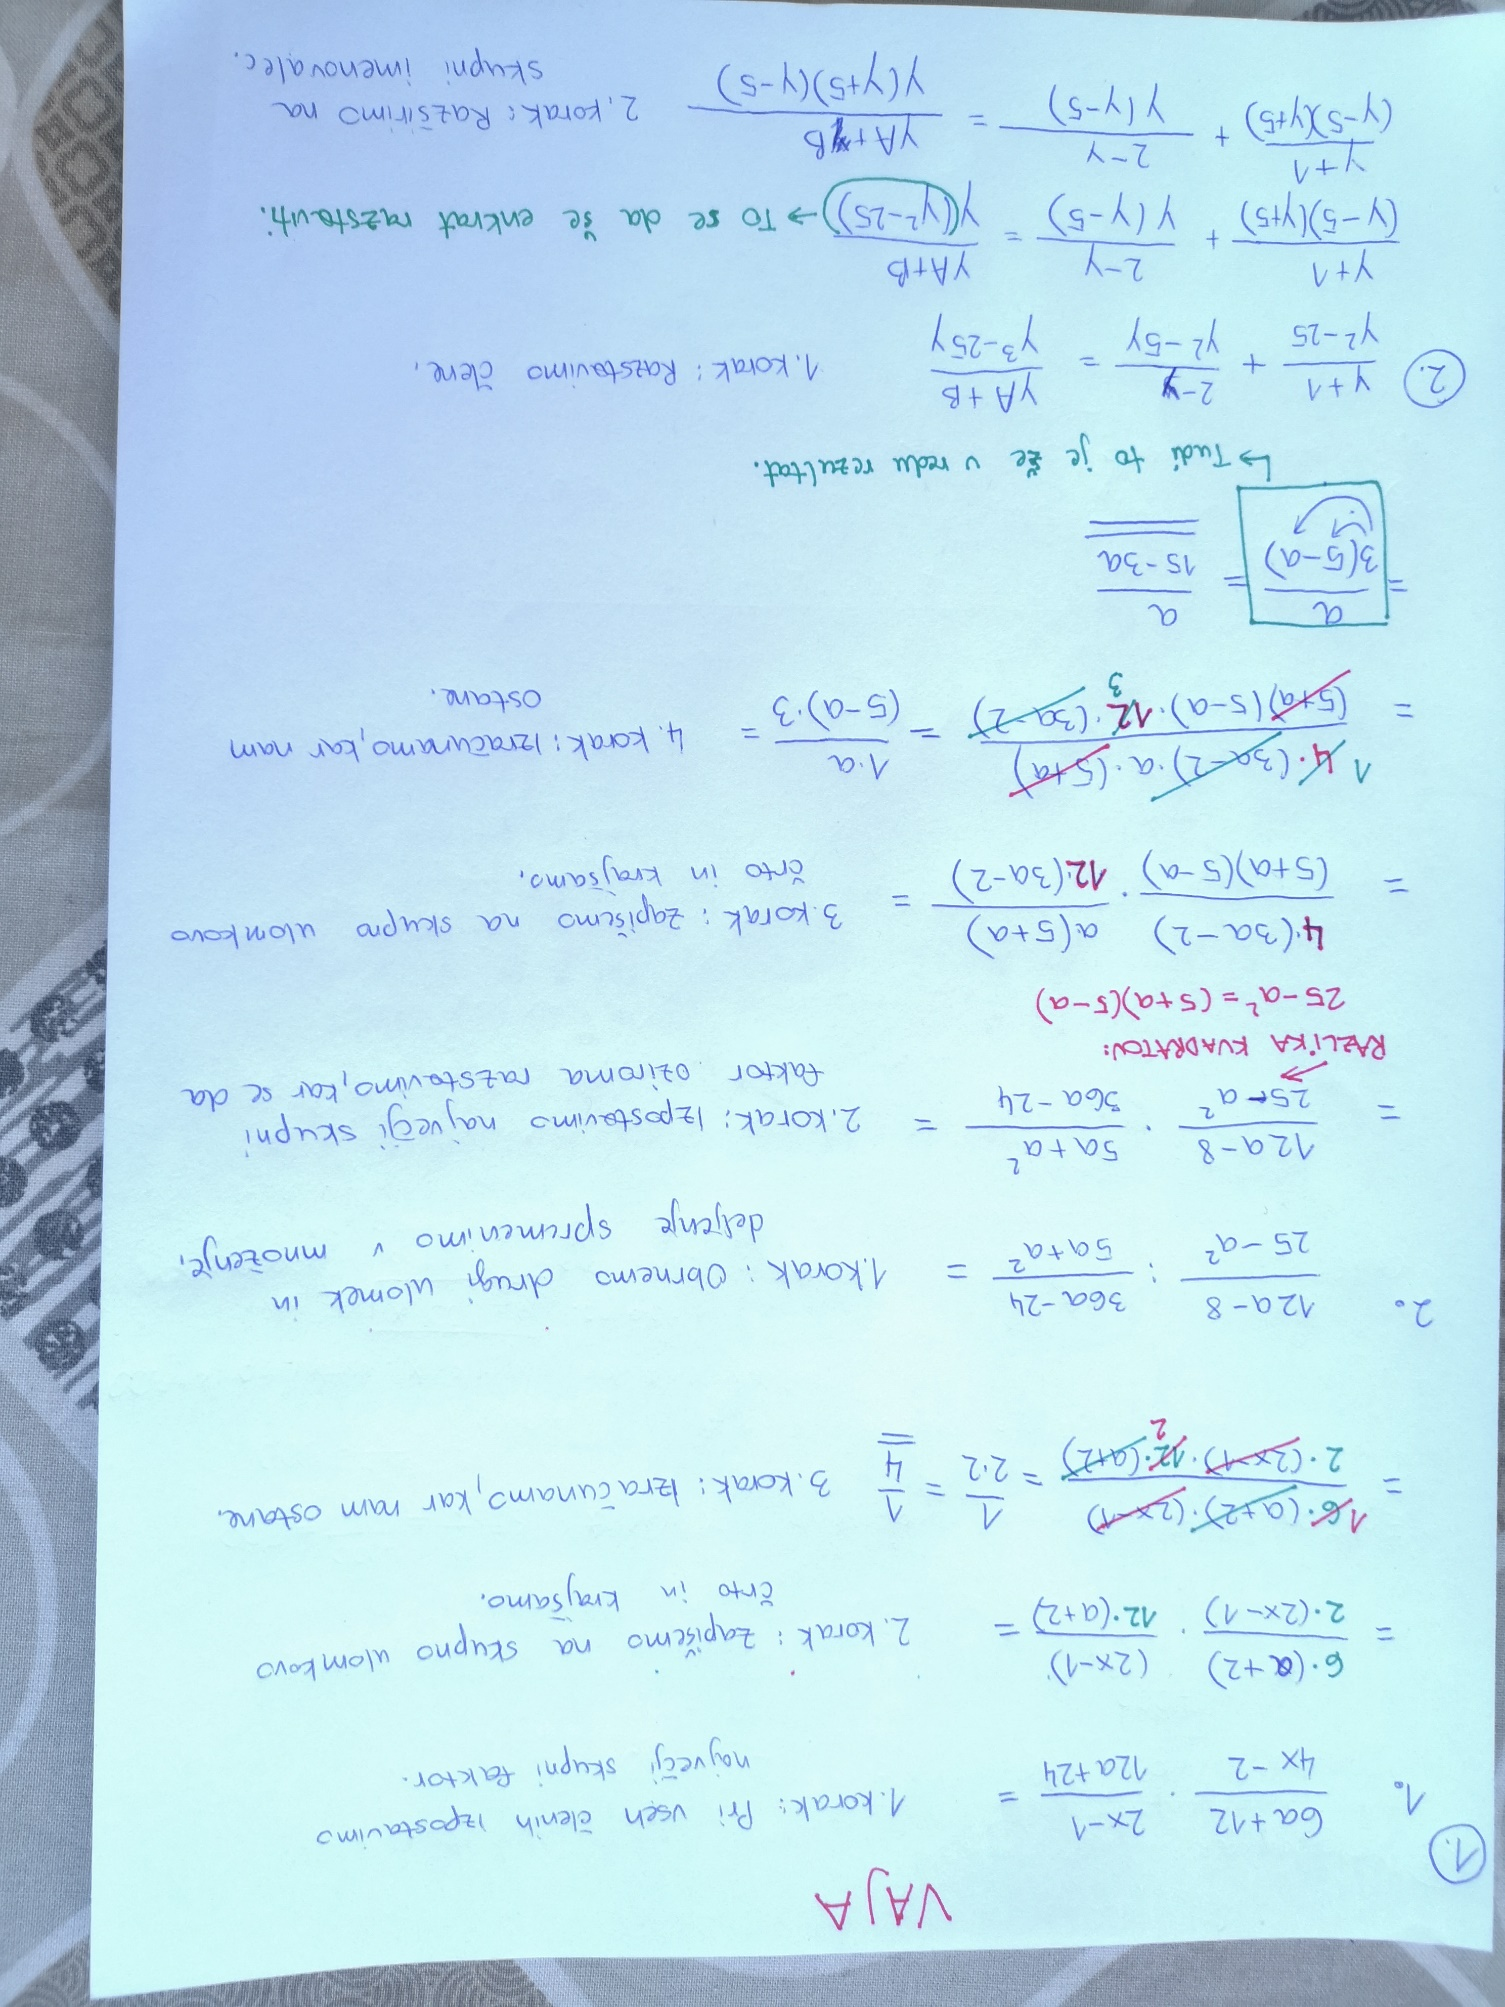 VAJA
1.
1. (6a+12)/(4x-2) · (2x-1)/(12a+24) = 1. korak: Pri vseh členih izpostavimo
največji skupni faktor.
= 6·(a+2)/2·(2x-1) · (2x-1)/12·(a+2) = 2. korak: Zapišemo na skupno ulomkovo
črto in krajšamo.
= 1 6·(a+2)·(2x-1)/2·(2x-1)·12·(a+2) 2 = 1/2·2 = 1/4 3. korak: Izračunamo, kar nam ostane.
2. (12a-8)/(25-a²) : (36a-24)/(5a+a²) = 1. korak: Obrnemo drugi ulomek in
deljenje spremenimo v množenje.
= (12a-8)/(25-a²) · (5a+a²)/(36a-24) = 2. korak: Izpostavimo največji skupni
faktor oziroma razstavimo, kar se da
RAZLIKA KVADRATOV:
25-a²=(5+a)(5-a)
= 4·(3a-2)/(5+a)(5-a) · a(5+a)/12·(3a-2) = 3. korak: Zapišemo na skupno ulomkovo
črto in krajšamo.
= 1 4·(3a-2)·a·(5+a)/(5+a)(5-a)·12·(3a-2) 3 = 1·a/(5-a)·3 = 4. korak: Izračunamo, kar nam
ostane.
= a/3(5-a) = a/(15-3a)
↳ Tudi to je že v redu rezultat.
2. (y+1)/(y²-25) + (2-y)/(y²-5y) = (yA+B)/(y³-25y) 1. korak: Razstavimo člene.
(y+1)/(y-5)(y+5) + (2-y)/y(y-5) = (yA+B)/y(y²-25) → To se da še enkrat razstaviti.
(y+1)/(y-5)(y+5) + (2-y)/y(y-5) = (yA+B)/y(y+5)(y-5) 2. korak: Razširimo na
skupni imenovalec.